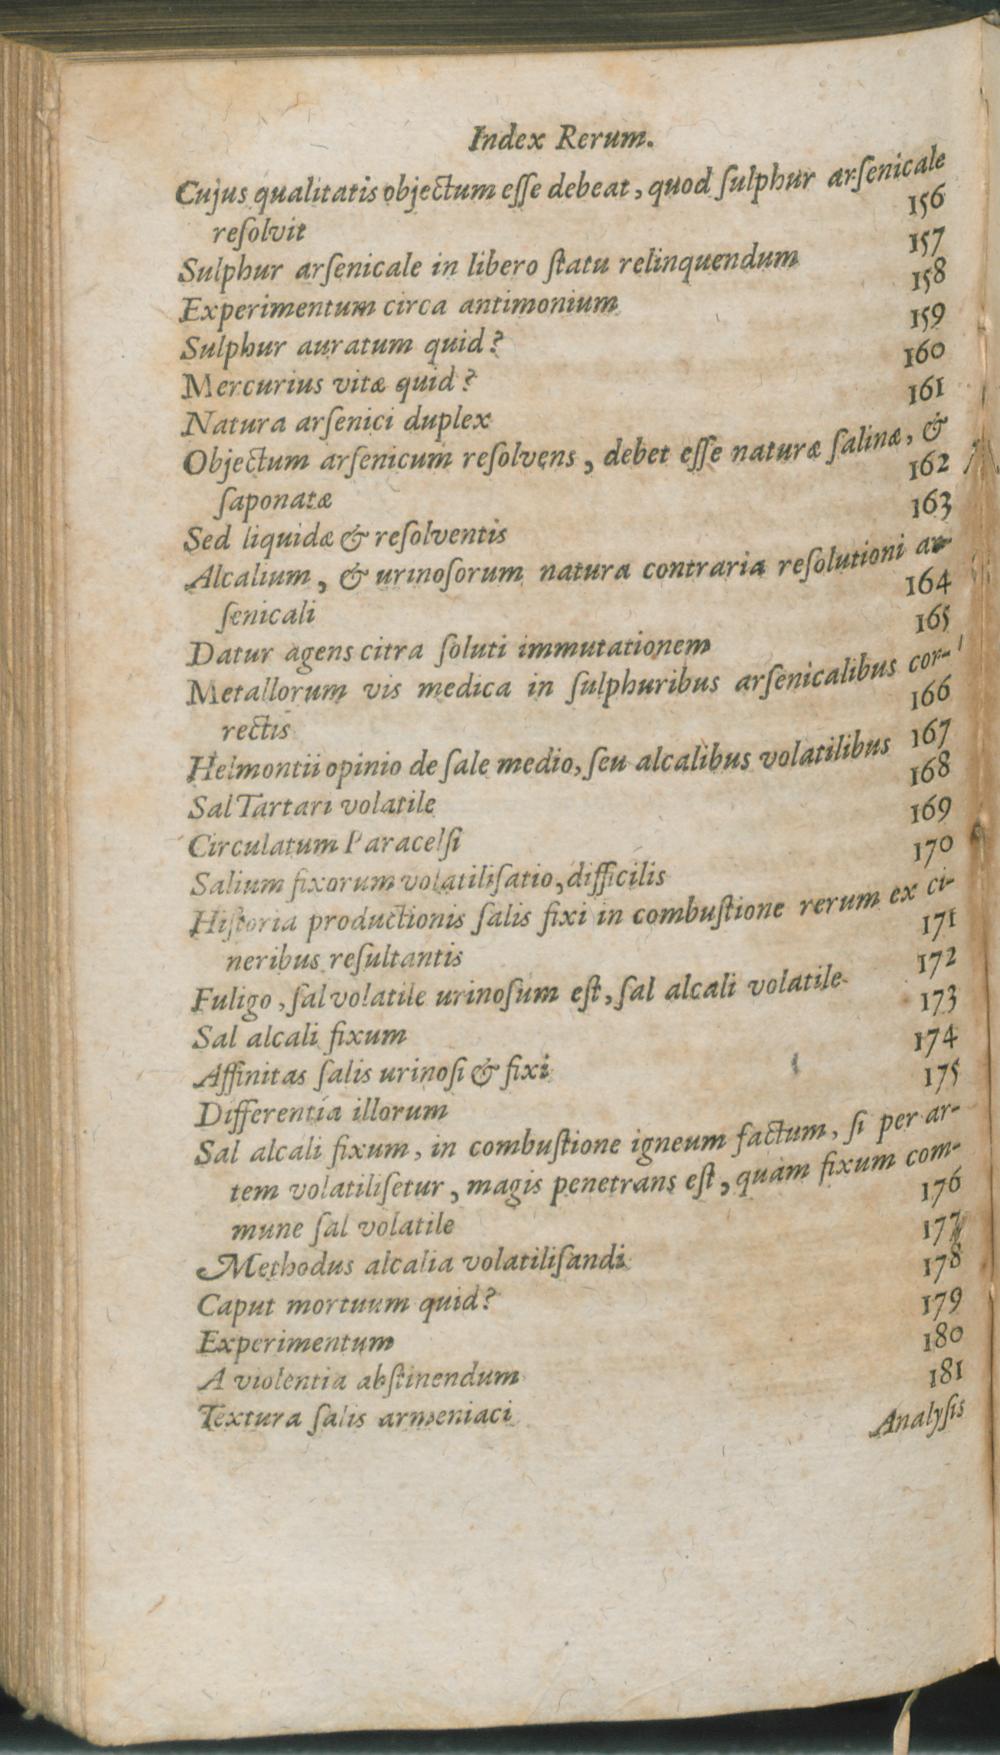 Index Rerum.
Cujus qualitatis objectum esse debeat, quod sulphur arsenicale
resolvit 156
Sulphur arsenicale in libero statu relinquendum 157
Experimentum circa antimonium 158
Sulphur auratum quid? 159
Mercurius vitæ quid? 160
Natura arsenici duplex 161
Objectum arsenicum resolvens, debet esse naturæ salinæ, &
saponatæ 162
Sed liquidæ & resolventis 163
Alcalium, & urinosorum natura contraria resolutioni ar-
senicali 164
Datur agens citra soluti immutationem 165
Metallorum vis medica in sulphuribus arsenicalibus cor-
rectis 166
Helmontii opinio de sale medio, seu alcalibus volatilibus 167
Sal Tartari volatile 168
Circulatum Paracelsi 169
Salium fixorum volatilisatio, difficilis 170
Historia productionis salis fixi in combustione rerum ex ci-
neribus resultantis 171
Fuligo, sal volatile urinosum est, sal alcali volatile 172
Sal alcali fixum 173
Affinitas salis urinosi & fixi 174
Differentia illorum 175
Sal alcali fixum, in combustione igneum factum, si per ar-
tem volatilisetur, magis penetrans est, quàm fixum com-
mune sal volatile 176
Methodus alcalia volatilisandi 177
Caput mortuum quid? 178
Experimentum 179
A violentia abstinendum 180
Textura salis armeniaci 181
Analysis